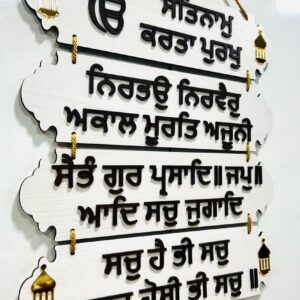 ੴ ਸਤਿਨਾਮੁ
ਕਰਤਾ ਪੁਰਖੁ
ਨਿਰਭਉ ਨਿਰਵੈਰੁ
ਅਕਾਲ ਮੂਰਤਿ ਅਜੂਨੀ
ਸੈਭੰ ਗੁਰ ਪ੍ਰਸਾਦਿ॥ ਜਪੁ॥
ਆਦਿ ਸਚੁ ਜੁਗਾਦਿ
ਸਚੁ ਹੈ ਭੀ ਸਚੁ
ਹੋਸੀ ਭੀ ਸਚੁ ॥